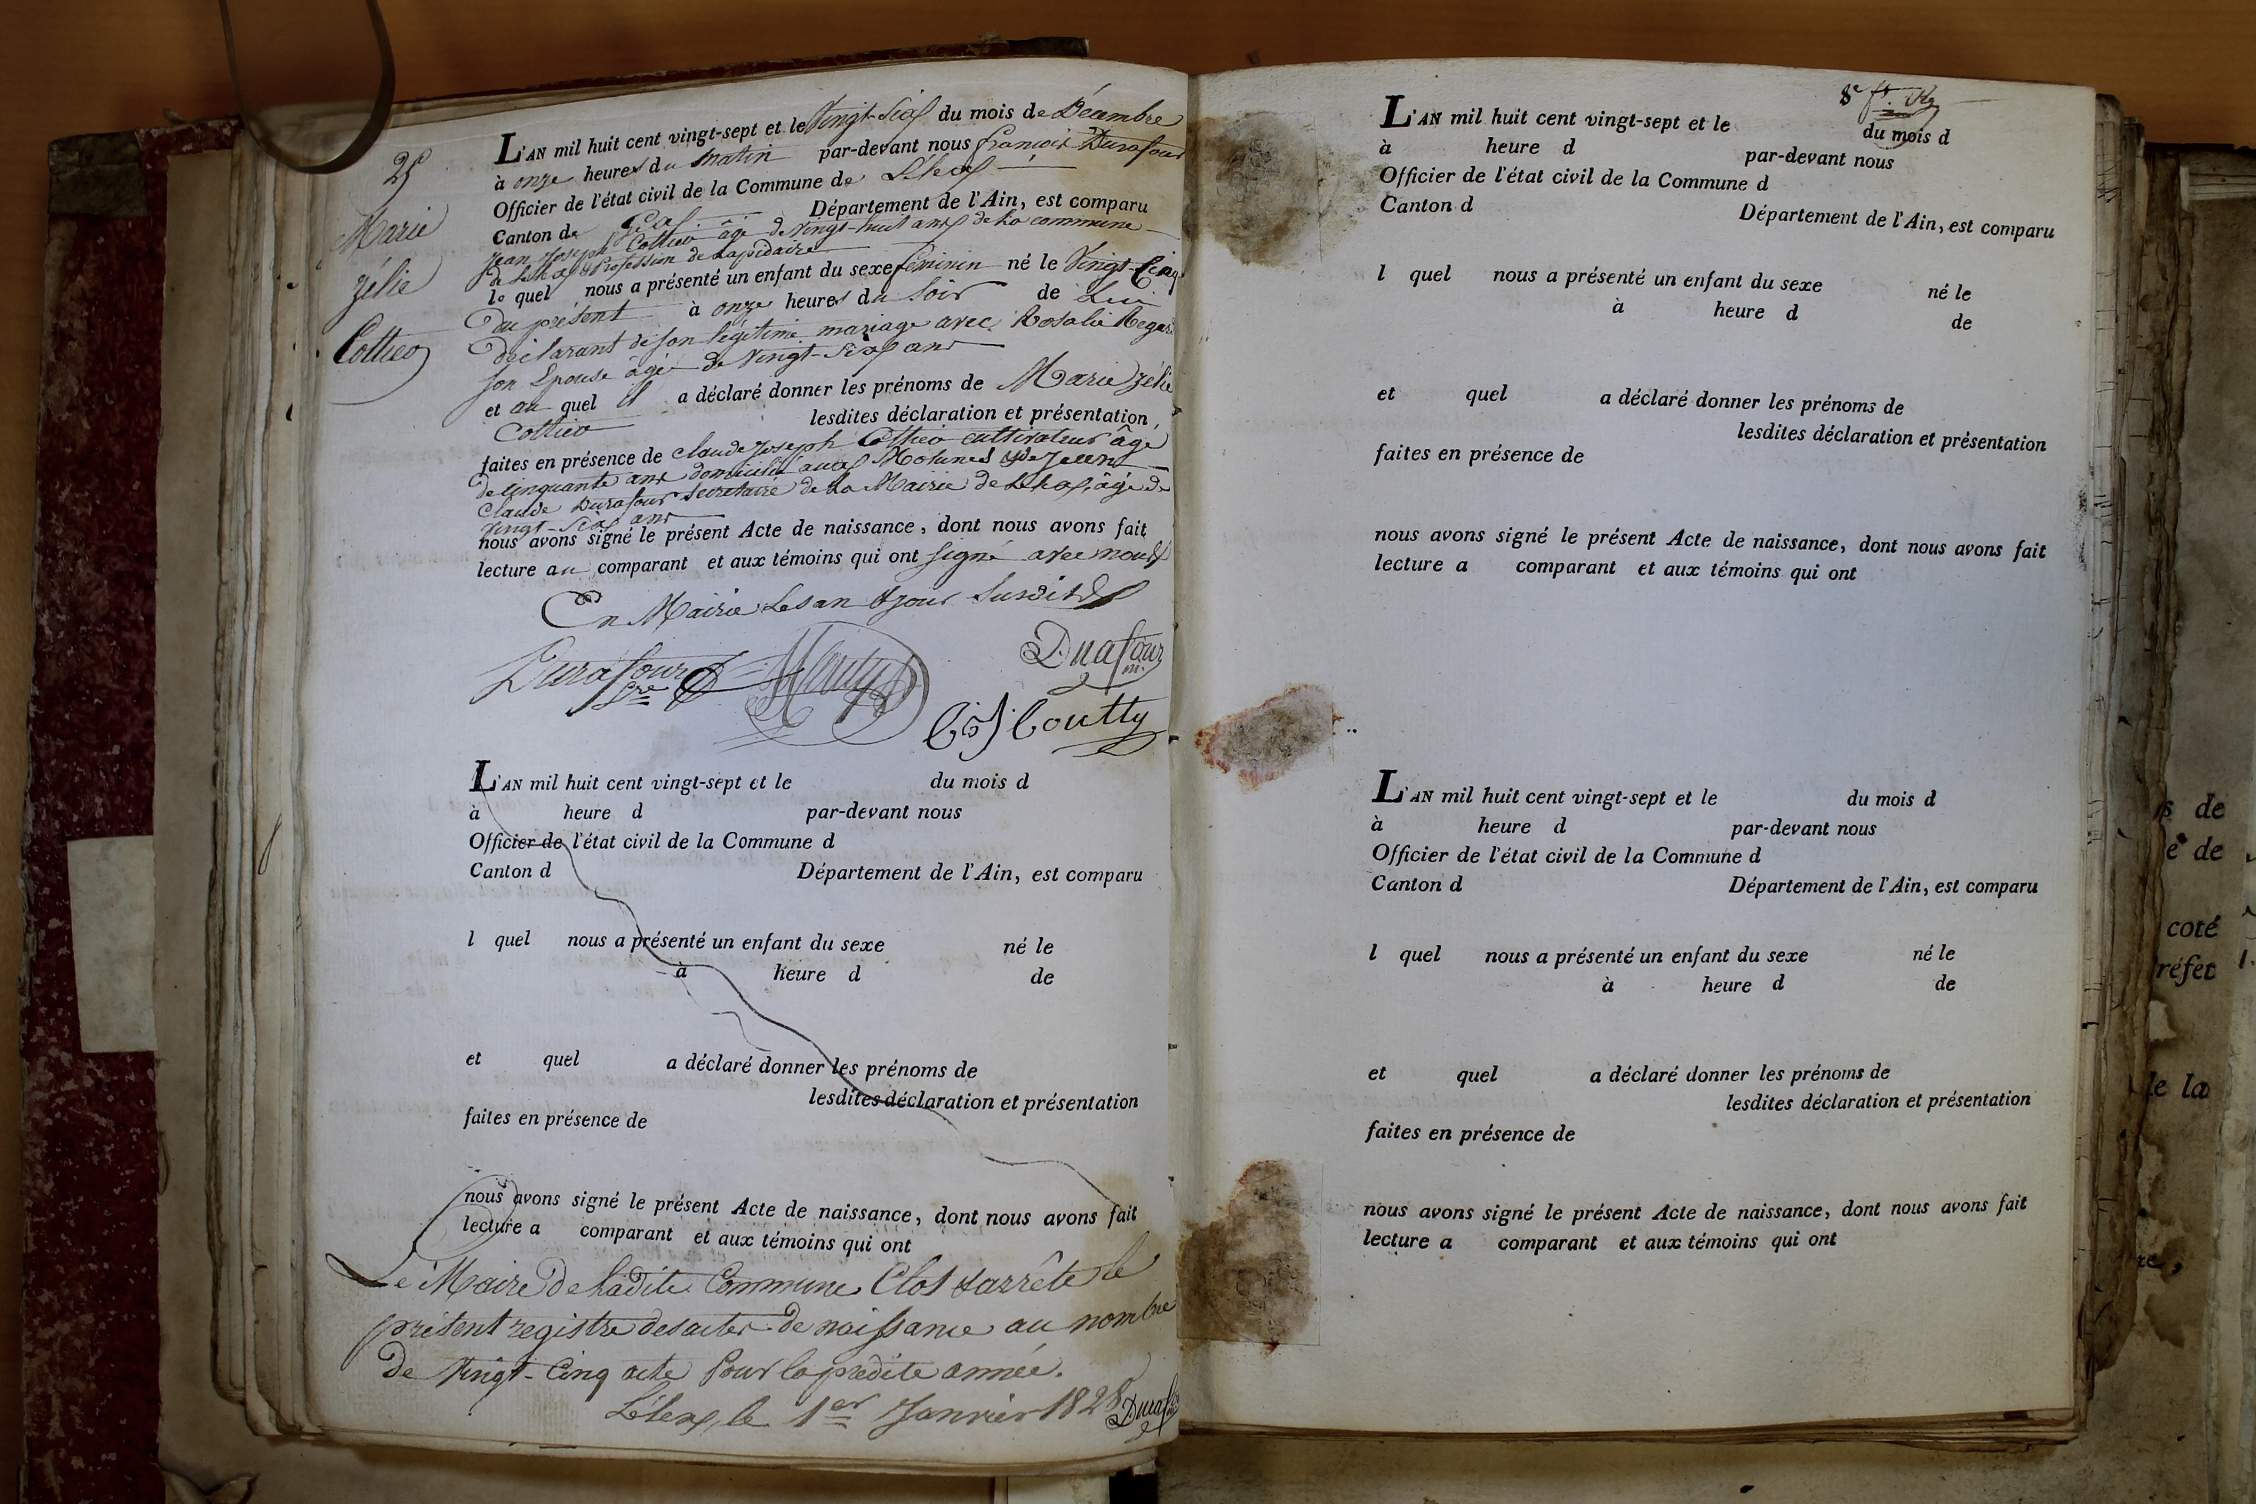 25
Marie
Zélie
Cottier
L'AN mil huit cent vingt-sept et le Vingt-Six du mois de Décembre
à onze heures du Matin par-devant nous François Durafour
Officier de l'état civil de la Commune de Lélex
Canton de Gex Département de l'Ain, est comparu
Jean Joseph Cottier âgé de Vingt-huit ans de la commune
de Lélex Profession de Lapidaire
le quel nous a présenté un enfant du sexe féminin né le Vingt-Cinq
du présent à onze heures du Soir de Lui
déclarant de son légitime mariage avec Rosalie Regard
son Epouse âgée de Vingt-Six ans
et au quel il a déclaré donner les prénoms de Marie Zélie
Cottier lesdites déclaration et présentation
faites en présence de Claude Joseph Cottier cultivateur âgé
de cinquante ans domicilié aux Molunes
Claude Durafour Secrétaire de la Mairie de Lélex, âgé de
Vingt-Six ans
nous avons signé le présent Acte de naissance, dont nous avons fait
lecture au comparant et aux témoins qui ont signé avec nous
En Mairie Les an & jour Susdits
Durafour
Sre
Duafour
m.
C. J. Coutty
L'AN mil huit cent vingt-sept et le du mois d
à heure d par-devant nous
Officier de l'état civil de la Commune d
Canton d Département de l'Ain, est comparu
l quel nous a présenté un enfant du sexe né le
à heure d de
et quel a déclaré donner les prénoms de
lesdites déclaration et présentation
faites en présence de
nous avons signé le présent Acte de naissance, dont nous avons fait
lecture a comparant et aux témoins qui ont
Le Maire de Ladite Commune Clos & arrête le
présent registre des actes de naissance au nombre
de Vingt-Cinq acte Pour la predite année.
Lélex, le 1er Janvier 1828
8e ft.
L'AN mil huit cent vingt-sept et le du mois d
à heure d par-devant nous
Officier de l'état civil de la Commune d
Canton d Département de l'Ain, est comparu
l quel nous a présenté un enfant du sexe né le
à heure d de
et quel a déclaré donner les prénoms de
lesdites déclaration et présentation
faites en présence de
nous avons signé le présent Acte de naissance, dont nous avons fait
lecture a comparant et aux témoins qui ont
L'AN mil huit cent vingt-sept et le du mois d
à heure d par-devant nous
Officier de l'état civil de la Commune d
Canton d Département de l'Ain, est comparu
l quel nous a présenté un enfant du sexe né le
à heure d de
et quel a déclaré donner les prénoms de
lesdites déclaration et présentation
faites en présence de
nous avons signé le présent Acte de naissance, dont nous avons fait
lecture a comparant et aux témoins qui ont
de
de
coté
réfet
le la